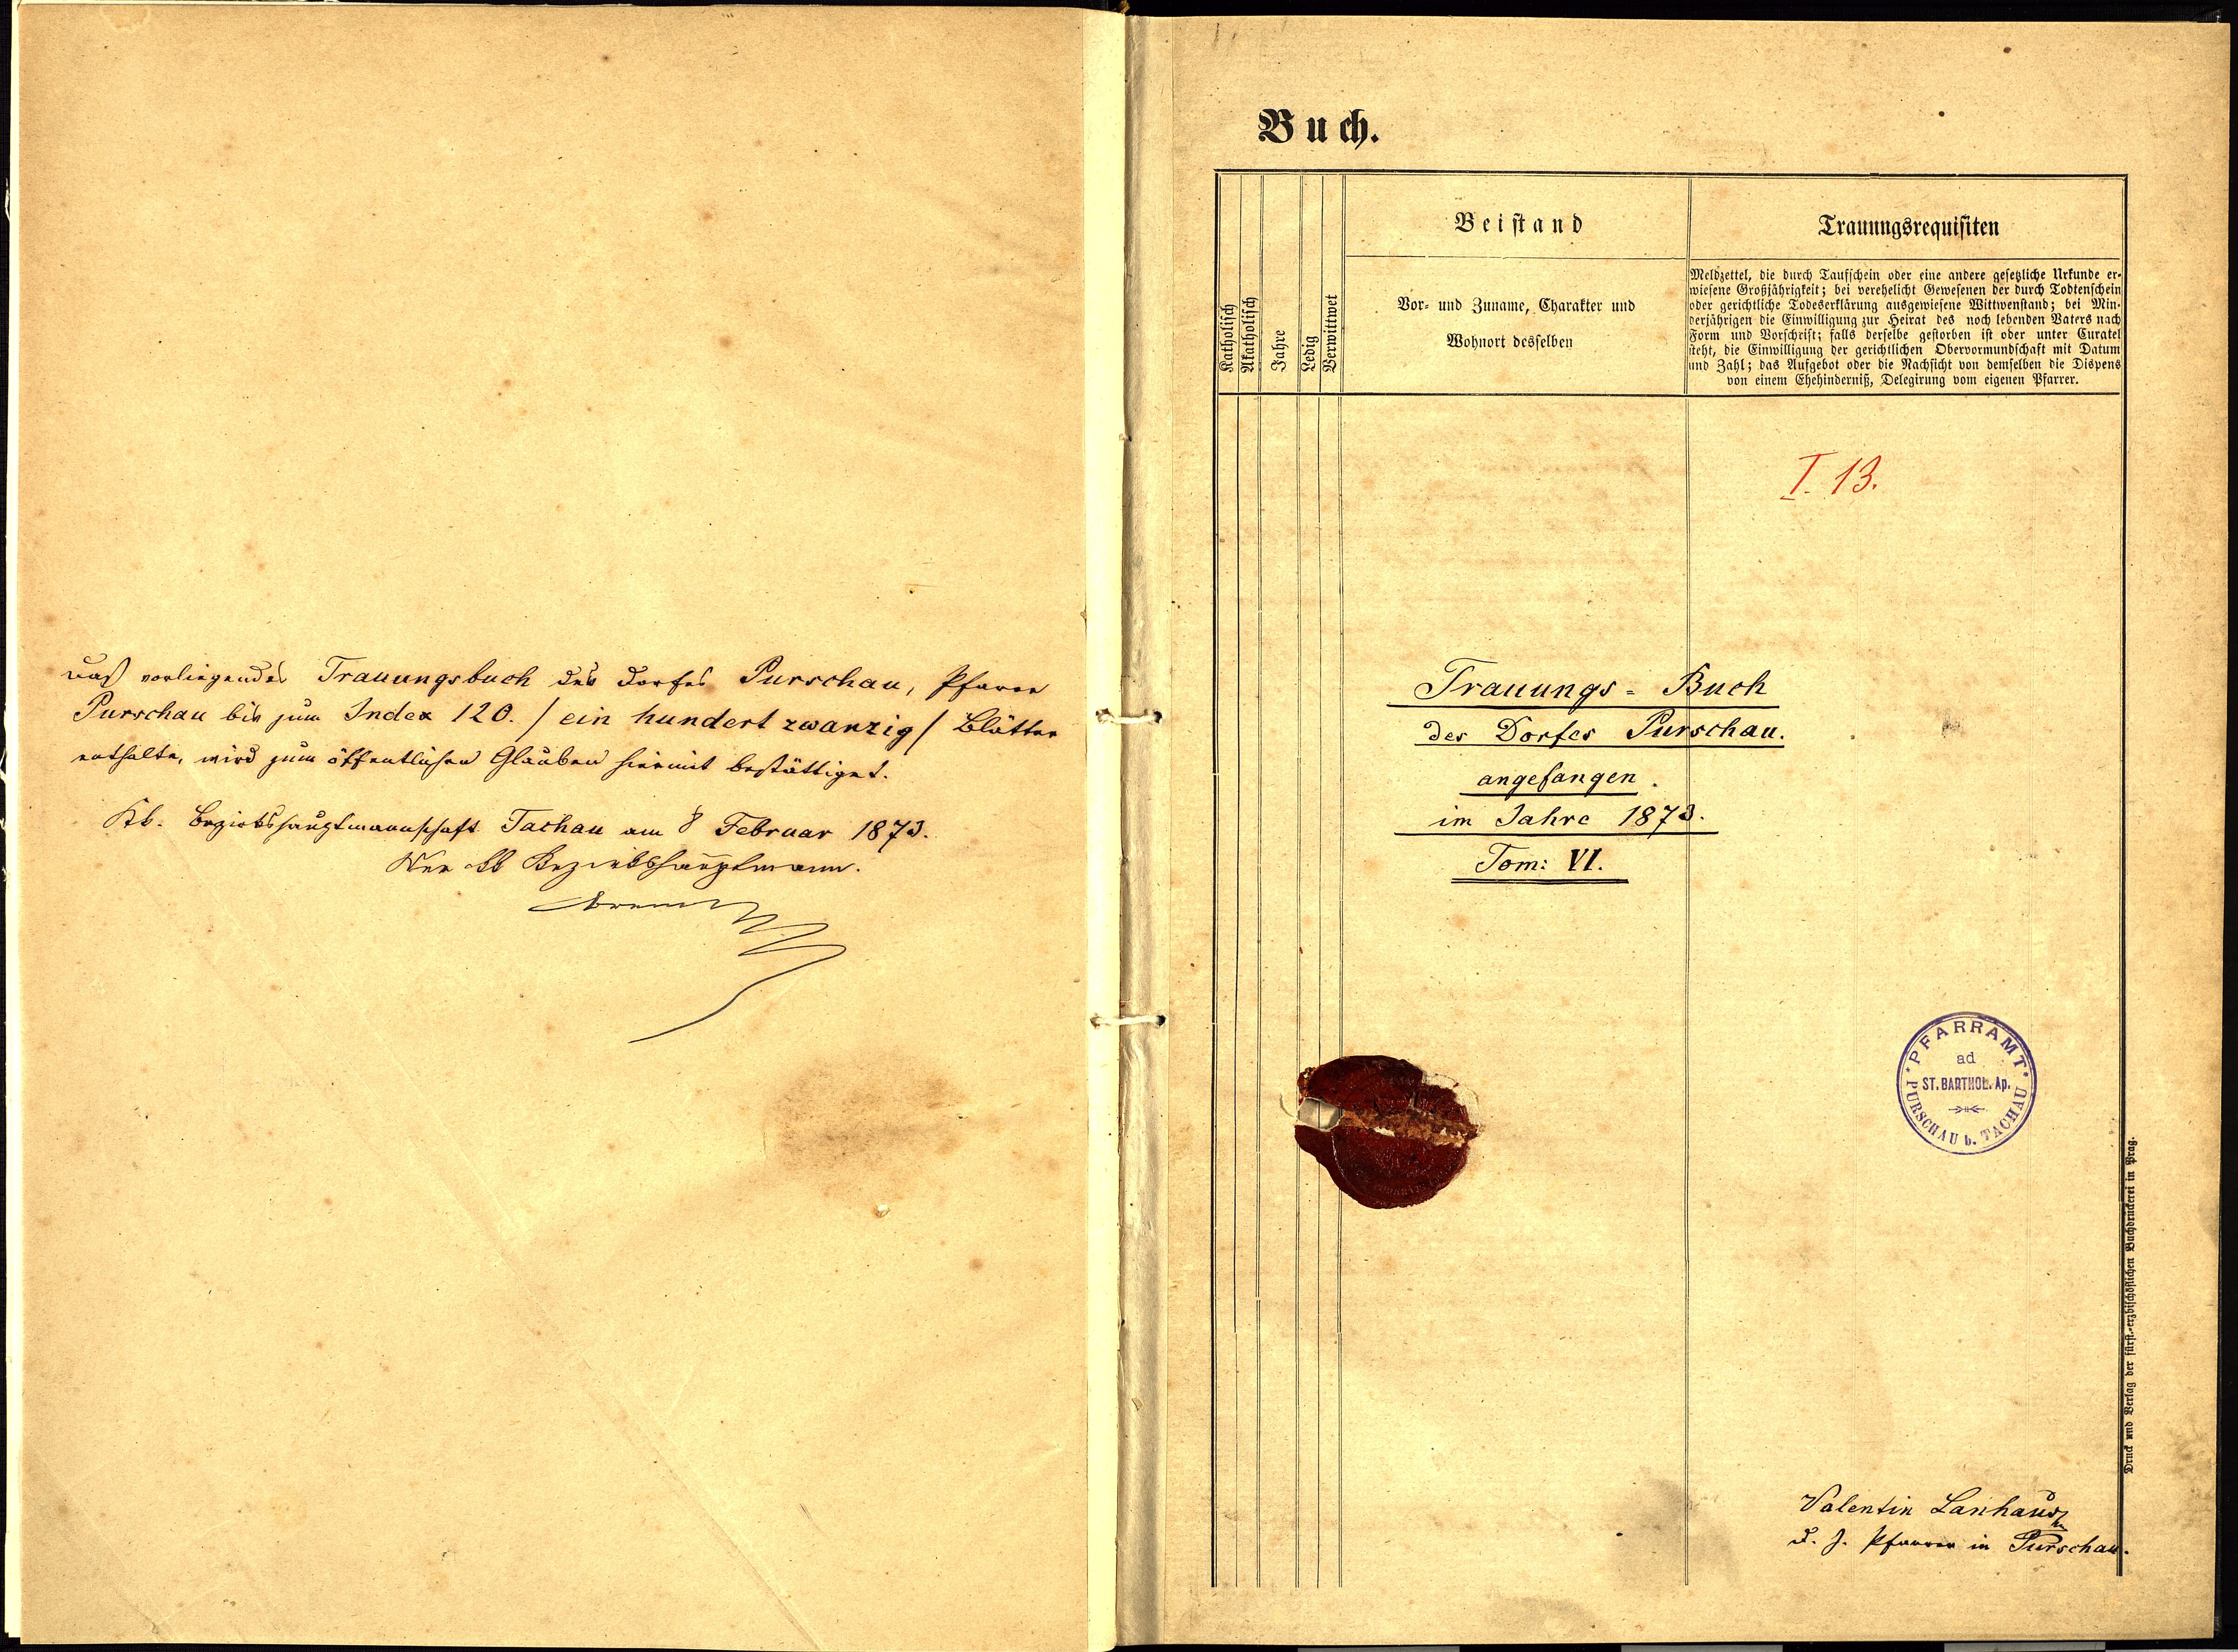 Daß vorliegendes Trauungsbuch des Dorfes Purschau, Pfarre
Purschau bis zum Index 120. / ein hundert zwanzig / Blätter
enthalte, wird zum öffentlichen Glauben hiermit bestättiget.
Kk. Bezirkshauptmannschaft Tachau am 8 Februar 1873.
Der kk Bezirkshauptmann.
Buch.
Katholisch
Akatholisch
Jahre
Ledig
Verwittwet
Beistand
Vor- und Zuname, Charakter und
Wohnort desselben
Trauungsrequisiten
Meldzettel, die durch Taufschein oder eine andere gesetzliche Urkunde er-
wiesene Großjährigkeit; bei verehelicht Gewesenen der durch Todtenschein
oder gerichtliche Todeserklärung ausgewiesene Wittwenstand; bei Min-
derjährigen die Einwilligung zur Heirat des noch lebenden Vaters nach
Form und Vorschrift; falls derselbe gestorben ist oder unter Curatel
steht, die Einwilligung der gerichtlichen Obervormundschaft mit Datum
und Zahl; das Aufgebot oder die Nachsicht von demselben die Dispens
von einem Ehehinderniß, Delegirung vom eigenen Pfarrer.
I. 13.
Trauungs = Buch
des Dorfes Purschau.
angefangen.
im Jahre 1873.
Tom: VI.
PFARRAMT
ad
ST. BARTHOL. Ap.
PURSCHAU b. TACHAU
Druck und Verlag der fürst.-erzbischöflichen Buchdruckerei in Prag.
Valentin
d. J. Pfarrer in Purschau.